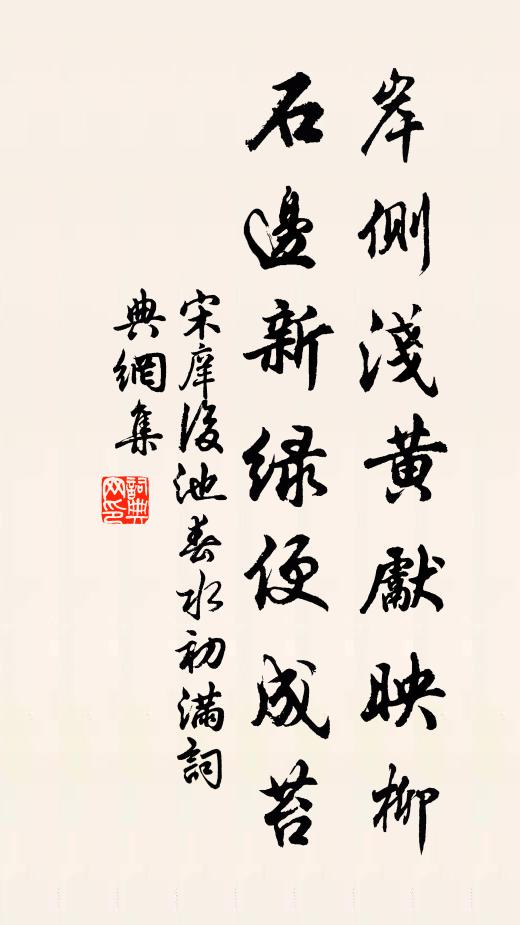 岸側淺黃獻映柳
石邊新緑便成苔
宋庠後池春水初滿詞
典網集
詞典
网印